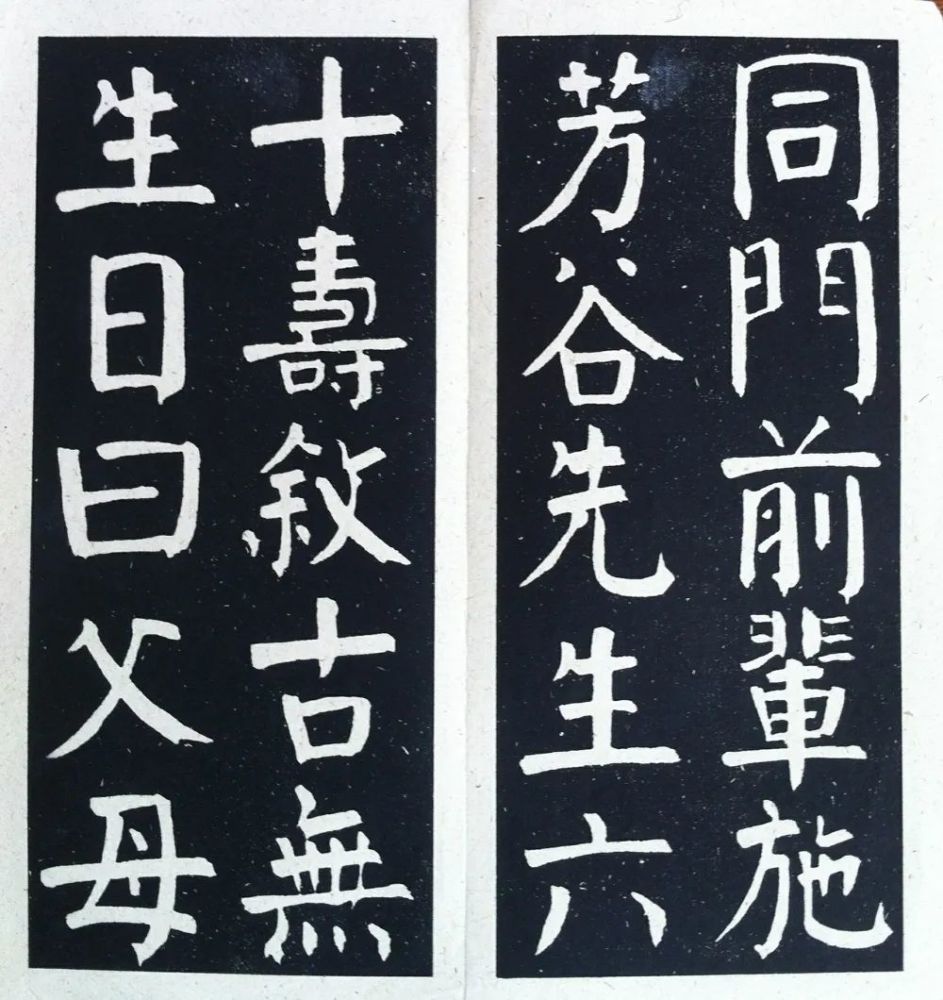 同門前輩施
芳谷先生六
十壽敘古無
生日曰父母